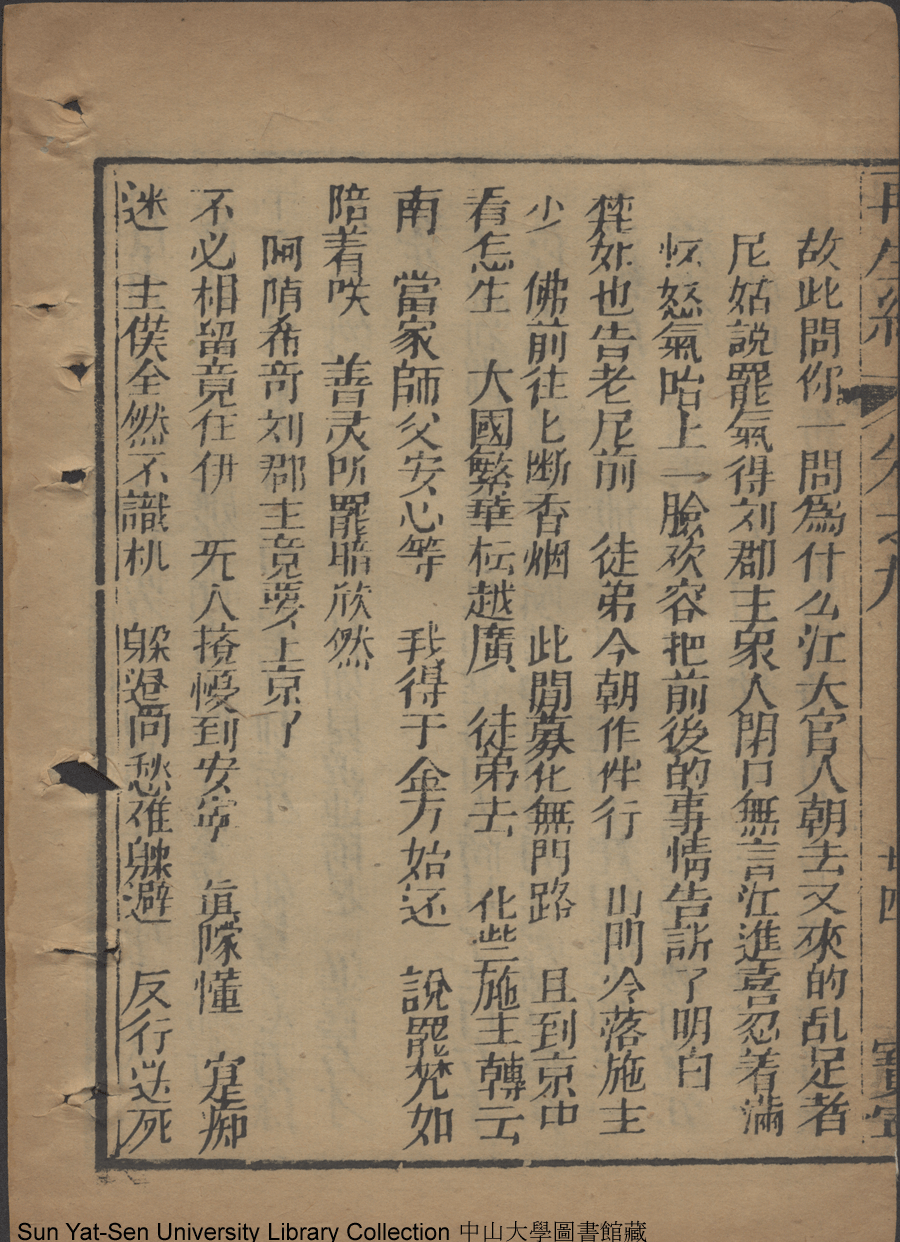 再生緣 卷之九 廿四 寳寧
故此問你一問為什么江大官人朝去又來的乱足者
尼姑說罷氣得刘郡主衆人閉口無言江進喜忍着滿
怀怒氣咍上一臉欢容把前後的事情告訴了明白
梵如也告老尼前 徒弟今朝作件行 山門冷落施主
少 佛前往匕断香烟 此間募化無門路 且到京中
看怎生 大國繁華枟越廣 徒弟去 化些施主轉云
南 當家師父安心等 我得于金方始还 說罷梵如
陪着咲 善灵所罷暗欣然
阿隋希奇刘郡主竟要上京了
不必相留竟任伊 旡人擾到安寧 真懞懂 定痴
迷 主僕全然不識机 躱避尚愁难躱避 反行送死
Sun Yat-Sen University Library Collection 中山大學圖書館藏